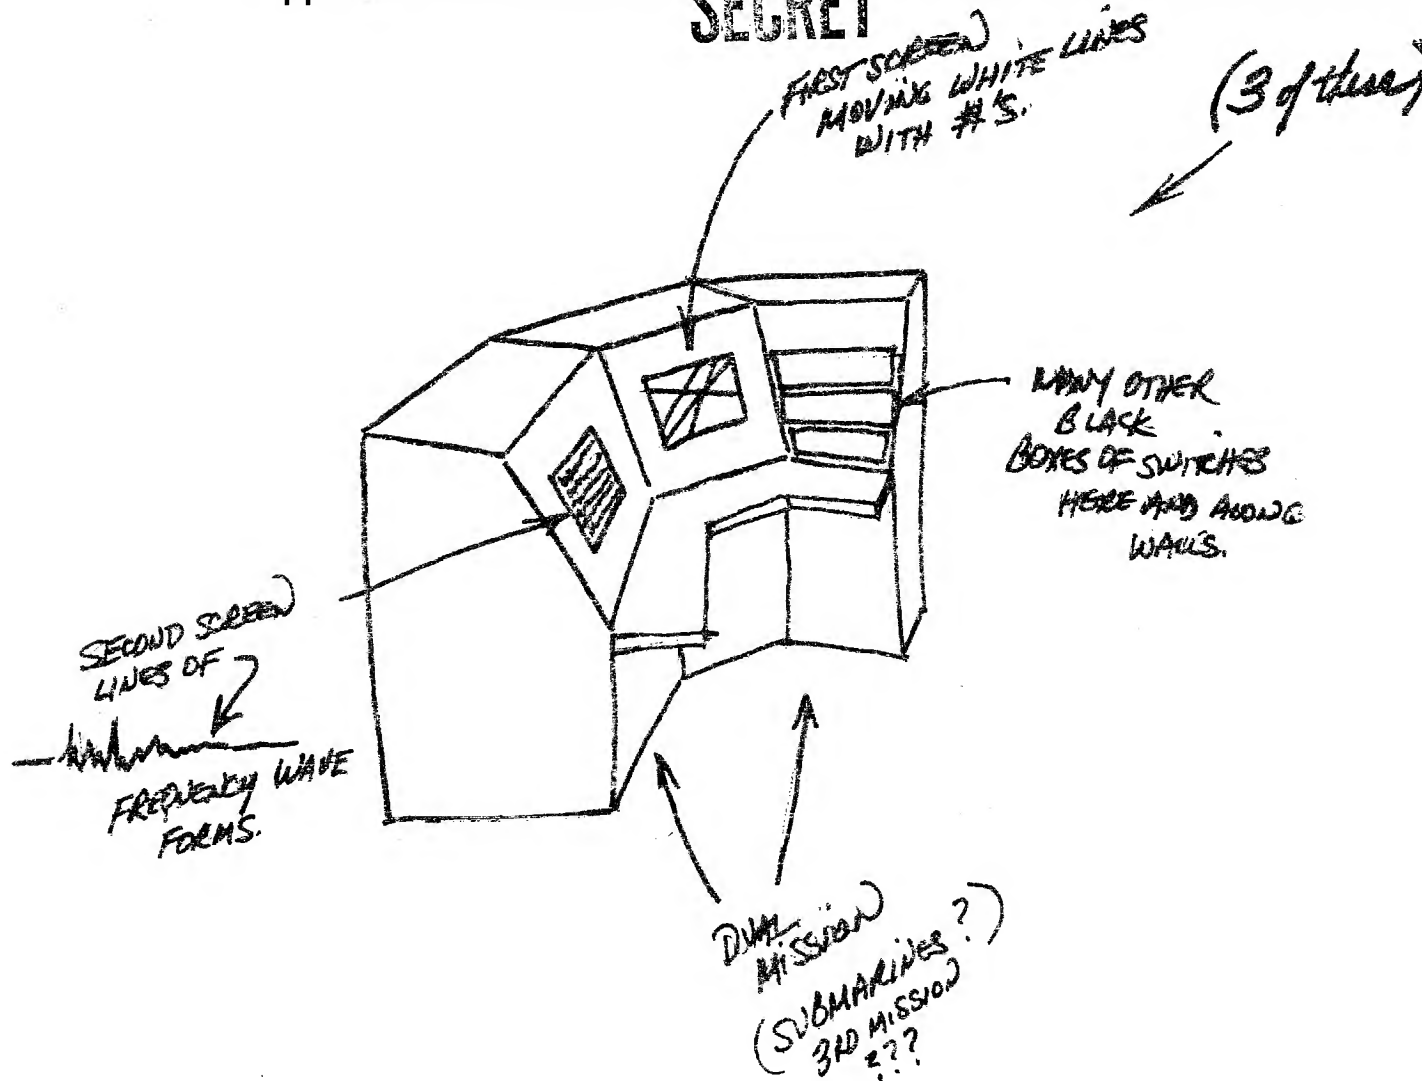 SECRET
FIRST SCREEN
MOVING WHITE LINES
WITH #'S.
(3 of these)
MANY OTHER
BLACK
BOXES OF SWITCHES
HERE AND ALONG
WALLS.
SECOND SCREEN
LINES OF
FREQUENCY WAVE
FORMS.
DUAL
MISSION
(SUBMARINES?)
3RD MISSION
???